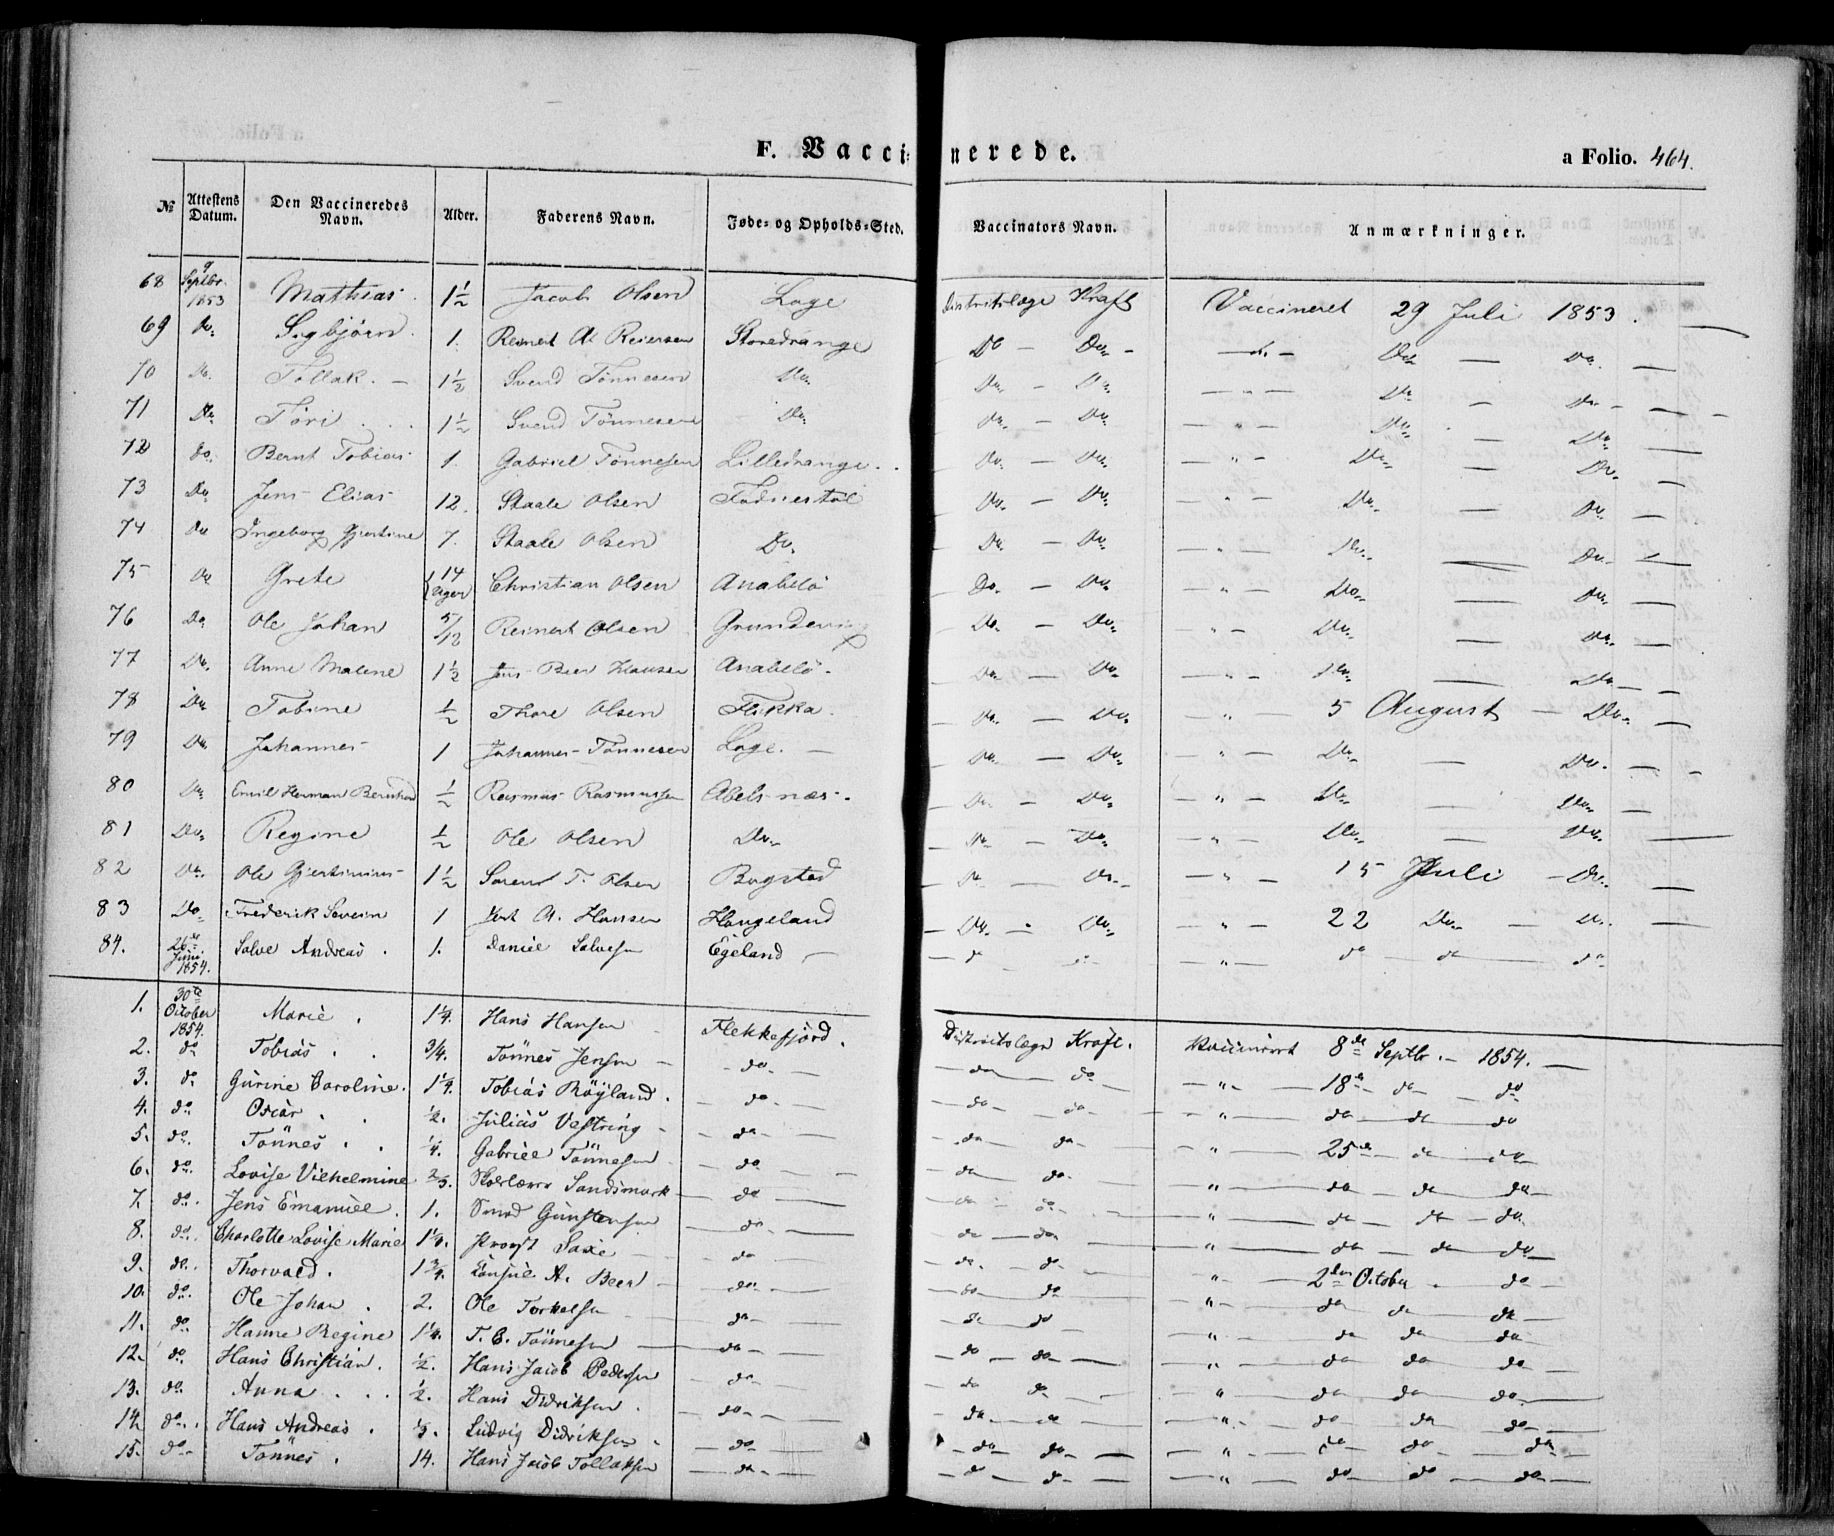 F. Vaccinerede. a Folio. 464.
№ Attestens Datum. Den Vaccineredes Navn. Alder. Faderens Navn. Føde- og Opholds-Sted. Vaccinators Navn. Anmærkninger.
68 9 Septbr. 1853 Mathias 1½ Jacob Olsen Loge Distriktslæge Kraft Vaccineret 29 Juli 1853.
69 Do. Sigbjörn 1. Reinert A. Reiersen Storedrange Do - Do. - — " — Do. — Do. —
70 Do. Tollak. - 1½ Svend Tönnesen Do. Do. - Do. — " — Do. — Do. —
71 Do. Töri 1½ Svend Tönnesen Do. Do. — Do. — " — Do. — Do. —
72 Do. Bernt Tobias 1. Gabriel Tönnesen Lilledrange Do. — Do. — " — Do. — Do. —
73 Do. Jens Elias 12. Staale Olsen Do. — Do. — " — Do. — Do. —
74 Do. Ingeborg Gjertine 7. Staale Olsen Do. Do. — Do. — " — Do. — Do. —
75 Do. Grete 14 Uger Christian Olsen Anabelö Do. — Do. — " — Do. — Do. —
76 Do. Ole Johan 5/12 Reinert Olsen Do. — Do. — " — Do. — Do. —
77 Do. Anne Malene 1½ Jens Beer Hansen Anabelö. Do. — Do. — " — Do. — Do. —
78 Do. Tobine ½ Thore Olsen Flikka. Do. — Do. — " — 5 August — Do. —
79 Do. Johannes 1 Johannes Tönnesen Loge. — Do. — Do. — " — Do. — Do. —
80 Do. Emil Herman Bernhard ½ Rasmus Rasmussen Abelsnæs. Do. — Do. — " — Do. — Do. —
81 Do. Regine ½ Ole Olsen Do. Do. — Do. — " — Do. — Do. —
82 Do. Ole Gjertinius 1½ Sörent T. Olsen Bogstad Do. — Do. — " — 15 Juli — Do. —
83 Do. Frederik Severin 1 A. Hansen Haugeland Do. - Do. — " — 22 Do. — Do. —
84. 26de Juni 1854. Salve Andreas. 1. Daniel Salvesen Egeland — — do do — " — do — do — do
1. 30te October 1854. Marie. 1¼. Hans Hansen Flekkefjord. Distriktslæge Kraft. Vaccineret 8de Septbr. - 1854. —
2. do Tobias. ¾. Tönnes Jensen — do — — do — do — " — 18de — do — do
3. do Gurine Caroline. 1¼. Tobias Röyland. — do — — do — do — " — do — do — do
4. do. Oscar. ½. Julius Vestring — do — — do — do " — 25de — do — do
5. do. Tönnes. ¼. Gabriel Tönnesen — do — — do — do. " — do — do — do —
6. do. Lovise Vilhelmine Sandsmark — do — — do — do. " — do — do — do.
7. do. Jens Emanuel. 1. Gunstensen — do — — do — do " — do — do — do —
8. do. Charlotte Lovise Marie Provst Saxe — — do — do. — do " — 2den October. do —
9. do. Thorvald. 1¾. Consul A. Beer — — do — — do — do " — do do do —
10. do. Ole Johan. 2. Ole Torkelsen — do — — do — do — " — do do do —
11. do. Hanne Regine 1¼. T. C. Tönnesen — do — — do — do — — " — do do do —
12. do. Hans Christian. ½. Hans Jacob Pedersen — do — — do do — " — do do do. —
13. do. Anna. ½. Hans Didriksen. — do — — do. — do — — " — do do do —
14 do. Hans Andreas. ⅓. Ludvig Didriksen. — do — — do do — — " — do — do — do —
15. do Tönnes. 14. Hans Jacob Tollaksen — do — — do — do — — " — do — do — do —